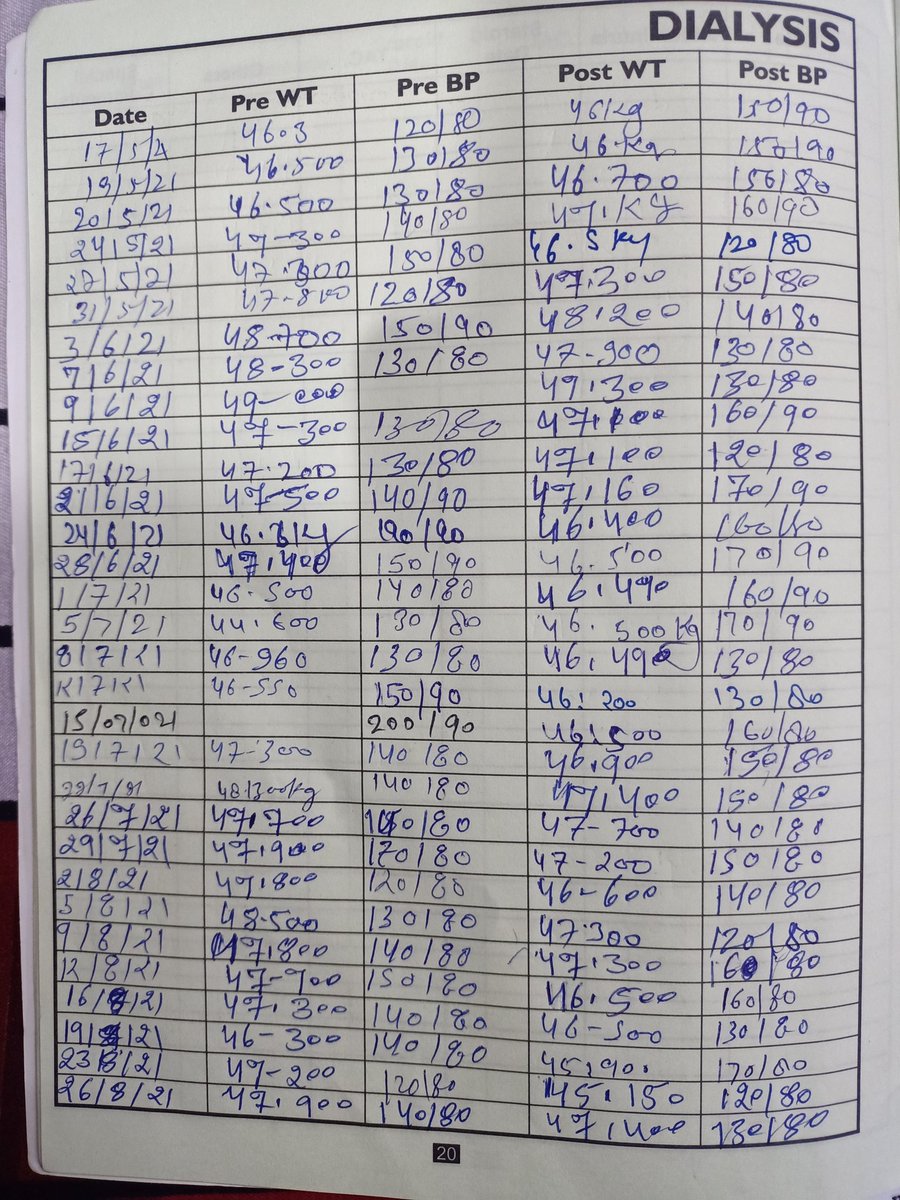 DIALYSIS
Date Pre WT Pre BP Post WT Post BP
17/5/21 46.3 120/80 46kg 150/90
19/5/21 46.500 130/80 46.Kg 150/90
20/5/21 46.500 130/80 46.700 150/80
24/5/21 47-300 140/80 47.KG 160/90
27/5/21 150/80 46.5 Kg 120/80
31/5/21 47-800 120/80 47.300 150/80
3/6/21 48-700 150/90 48.200 140/80
7/6/21 48-300 130/80 47-900 130/80
9/6/21 49-000 49.300 130/80
15/6/21 47-300 130/80 160/90
17/6/21 47.200 130/80 47.100 120/80
21/6/21 47-500 140/90 47.160 170/90
24/6/21 46.400 160/80
28/6/21 47.400 150/90 46.500 170/90
1/7/21 46-500 140/80 46.490 160/90
5/7/21 44.600 130/80 46.500Kg 170/90
8/7/21 46-960 130/80 130/80
12/7/21 46-550 150/90 46.200 130/80
15/07/021 200/90 46.500 160/80
19/7/21 47-300 140/80 46.900 150/80
48.300kg 140/80 47.400 150/80
26/7/21 47.700 47-700 140/80
29/7/21 47.900 170/80 47-200 150/80
2/8/21 47.800 120/80 46-600 140/80
5/8/21 48.500 130/80 47.300 120/80
9/8/21 47.800 140/80 47.300 160/80
12/8/21 47-900 150/80 46.500 160/80
16/8/21 47.300 140/80 46-500 130/80
19/8/21 46-300 140/80 170/80
23/8/21 47-200 120/80 45.150 120/80
26/8/21 47.900 140/80 47.400 130/80
20